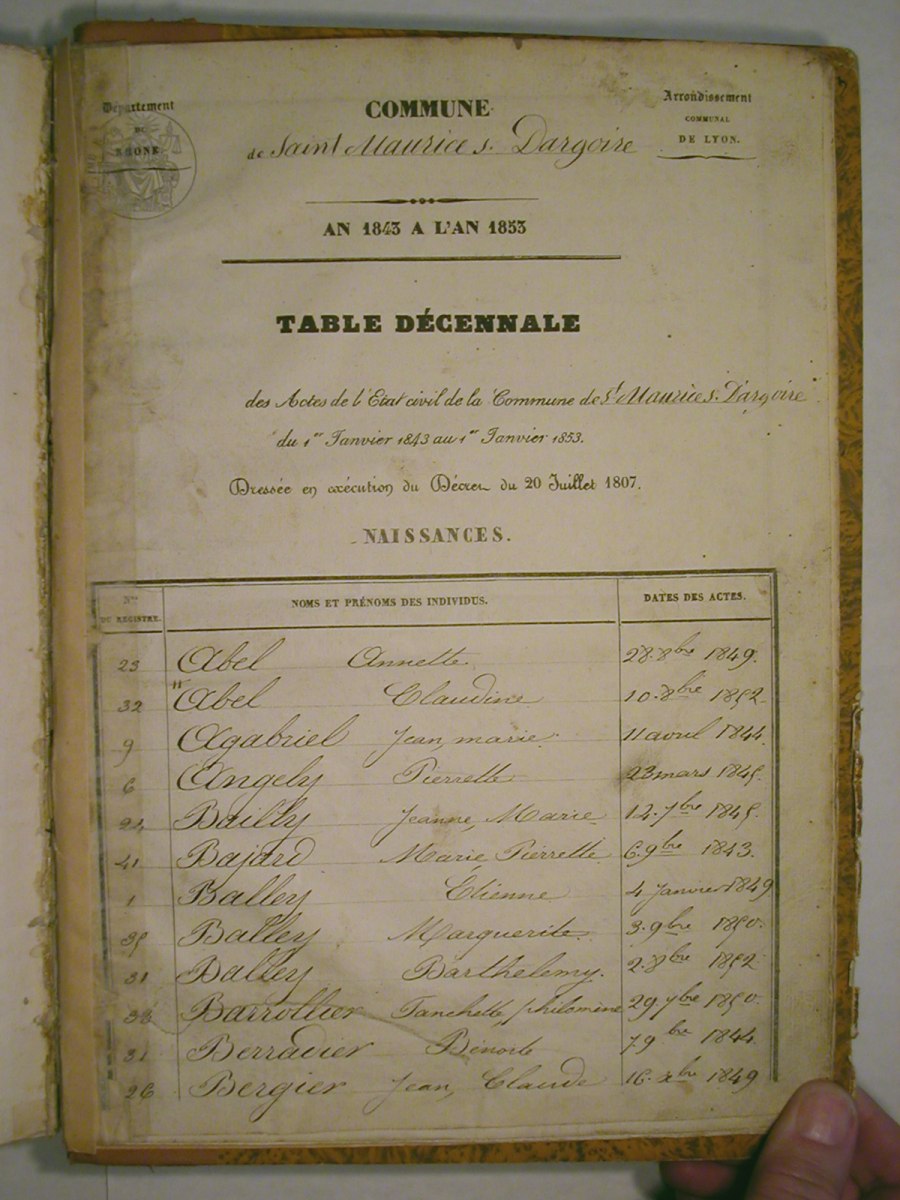 Département
DU
RHONE.
COMMUNE
de Saint Maurice s. Dargoire
Arrondissement
COMMUNAL
DE LYON.
AN 1843 A L'AN 1853
TABLE DÉCENNALE
des Actes de l'Etat civil de la Commune de St Maurice s. Dargoire
du 1er Janvier 1843 au 1er Janvier 1853.
Dressée en exécution du Décret du 20 Juillet 1807.
NAISSANCES.
Nos DU REGISTRE. NOMS ET PRÉNOMS DES INDIVIDUS. DATES DES ACTES.
23 Abel Annette 28. 8bre 1849.
32 Abel Claudine 10. 8bre 1852.
9 Agabriel Jean, marie. 11 avril 1844.
6 Angely Pierrette 23 mars 1845.
24 Bailly Jeanne, Marie 14. 7bre 1845.
41 Bajard Marie Pierrette 6. 9bre 1843.
1 Balley Etienne 4 Janvier 1849
35 Balley Marguerite 3. 9bre 1850.
31 Balley Barthelemy. 2. 8bre 1852
33 Barrollier Fanchette, philomine 29 7bre 1850.
31 Berradier Benoite 7 9bre 1844.
26 Bergier Jean, Claude 16. xbre 1849